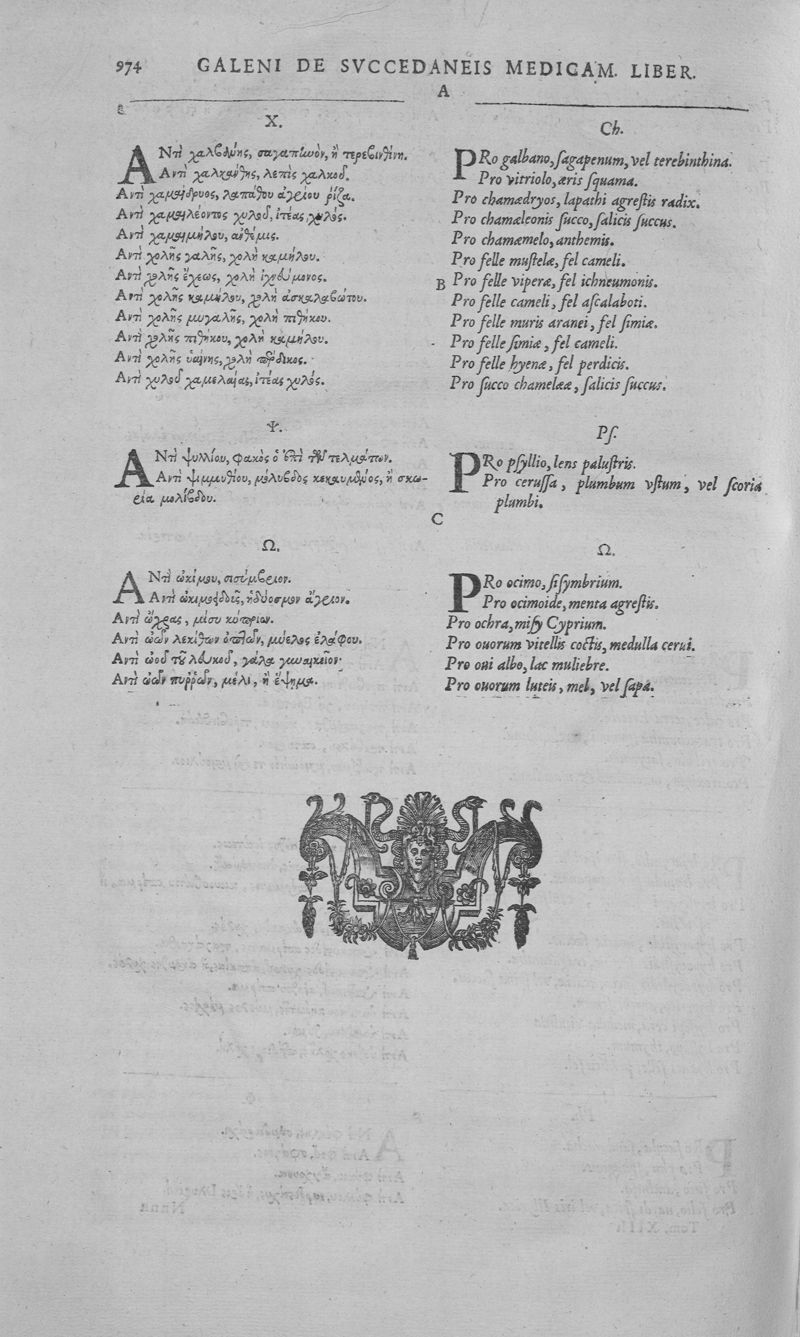 974 GALENI DE SVCCEDANEIS MEDICAM. LIBER.
A
Χ.
ΑΝτὶ χαλβάνης, σαγαπηνὸν, ἢ τερεβινθίνη.
Αντὶ χαλκάνθης, λεπὶς χαλκοῦ.
Αντὶ χαμαίδρυος, λαπάθου ἀγρίου ῥίζα.
Αντὶ χαμαιλέοντος χυλοῦ, ἰτέας χυλός.
Αντὶ χαμαιμήλου, ἀνθεμίς.
Αντὶ χολῆς γαλῆς, χολὴ καμήλου.
Αντὶ χολῆς ἔχεως, χολὴ ἰχνεύμονος.
Αντὶ χολῆς καμήλου, χολὴ ἀσκαλαβώτου.
Αντὶ χολῆς μυγαλῆς, χολὴ πιθήκου.
Αντὶ χολῆς πιθήκου, χολὴ καμήλου.
Αντὶ χολῆς ὑαίνης, χολὴ πέρδικος.
Αντὶ χυλοῦ χαμελαίας, ἰτέας χυλός.
Ψ.
ΑΝτὶ ψυλλίου, φακὸς ὁ ἐπὶ τῶν τελμάτων.
Αντὶ ψιμμυθίου, μόλυβδος κεκαυμένος, ἢ σκω-
ρία μολίβδου.
Ω.
ΑΝτὶ ὠκίμου, σισύμβριον.
Αντὶ ὠκιμοειδοῦς, ἡδύοσμον ἄγριον.
Αντὶ ὤχρας, μίσυ κύπριον.
Αντὶ ὠῶν λεκίθων ὀπτῶν, μύελος ἐλάφου.
Αντὶ ὠοῦ τοῦ λευκοῦ, γάλα γυναικεῖον.
Αντὶ ὠῶν πυῤῥῶν, μέλι, ἢ ἕψημα.
Ch.
PRo galbano, sagapenum, vel terebinthina.
Pro vitriolo, æris squama.
Pro chamædryos, lapathi agrestis radix.
Pro chamæleonis succo, salicis succus.
Pro chamæmelo, anthemis.
Pro felle mustelæ, fel cameli.
B Pro felle viperæ, fel ichneumonis.
Pro felle cameli, fel ascalaboti.
Pro felle muris aranei, fel simiæ.
Pro felle simiæ, fel cameli.
Pro felle hyenæ, fel perdicis.
Pro succo chamelææ, salicis succus.
Ps.
PRo psyllio, lens palustris.
Pro cerussa, plumbum vstum, vel scoria
plumbi.
C
Ω.
PRo ocimo, sisymbrium.
Pro ocimoide, menta agrestis.
Pro ochra, misy Cyprium.
Pro ouorum vitellis coctis, medulla cerui.
Pro oui albo, lac muliebre.
Pro ouorum luteis, mel, vel sapa.